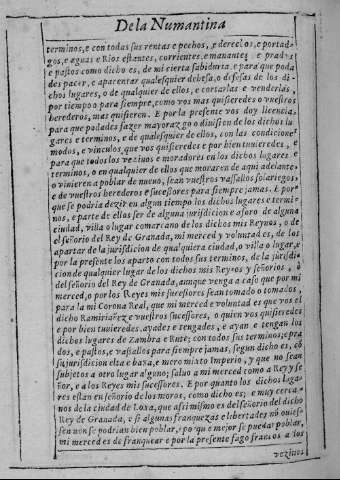 De la Numantina
terminos, e con todas sus rentas e pechos, e derechos, e portad-
gos, e aguas e Rios estantes, corrientes, e manantes, e prados
e pastos como dicho es, de mi cierta sabiduria, e para que poda
des pacer, e apacentar qualesquier debesa, o defesas de los di-
chos lugares, o de qualquier de ellos, e cortarlas e venderlas,
por tiempo o para siempre, como vos mas quisieredes o vuestros
herederos, mas quisieren. E por la presente vos doy licencia,
para que podades fazer mayorazgo o divisien de los dichos lu
gares e terminos, e de qualesquier de ellos, con las condiciones
modos, e vinculos, que vos quisieredes e por bien tuvieredes, e
para que todos los vezinos e moradores en los dichos lugares e
terminos, o en qualquier de ellos que moraren de aqui adelante
o vinieren a poblar de nuevo, sean vuestros vassallos solariegos,
e de vuestros herederos e sucessores para siempre jamas. E por
que se podria dezir en algun tiempo los dichos lugares e termi-
nos, e parte de ellos ser de alguna jurisdicion e aforo de alguna
ciudad, villa o lugar comarcano de los dichos mis Reynos, o de
el señorio del Rey de Granada, mi merced y voluntad es, de los
apartar de la jurisdicion de qualquiera ciudad, o villa o lugar, e
por la presente los aparto con todos sus terminos, de la jurisdi-
cion de qualquier lugar de los dichos mis Reynos y señorios, o
del señorio del Rey de Granada, aunque venga a caso que por mi
merced, o por los Reyes mis sucessores sean tomado o tomados,
para la mi Corona Real, que mi merced e voluntad es que vos el
dicho Ramiriañez e vuestros sucessores, o quien vos quisieredes
e por bien tuvieredes, ayades e tengades, e ayan e tengan los
dichos lugares de Zambra e Rute; con todos sus terminos, e pra
dos, e pastos, e vassallos para siempre jamas, segun dicho es, co
su jurisdicion alta e baxa, e mero mixto Imperio, y que no sean
subjetos a otro lugar alguno; salvo a mi merced como a Rey y se
ñor, e a los Reyes mis sucessores. E por quanto los dichos luga-
res estan en señorio de los moros, como dicho es; e muy cerca-
nos de la ciudad de Loxa, que assi mismo es del señorio del dicho
Rey de Granada, e si algunas franquezas e libertades nõ ouies-
sen non se podrian bien poblar, e por que e mejor se puedan poblar,
mi merced es de franquear e por la presente fago francos a los
vezinos